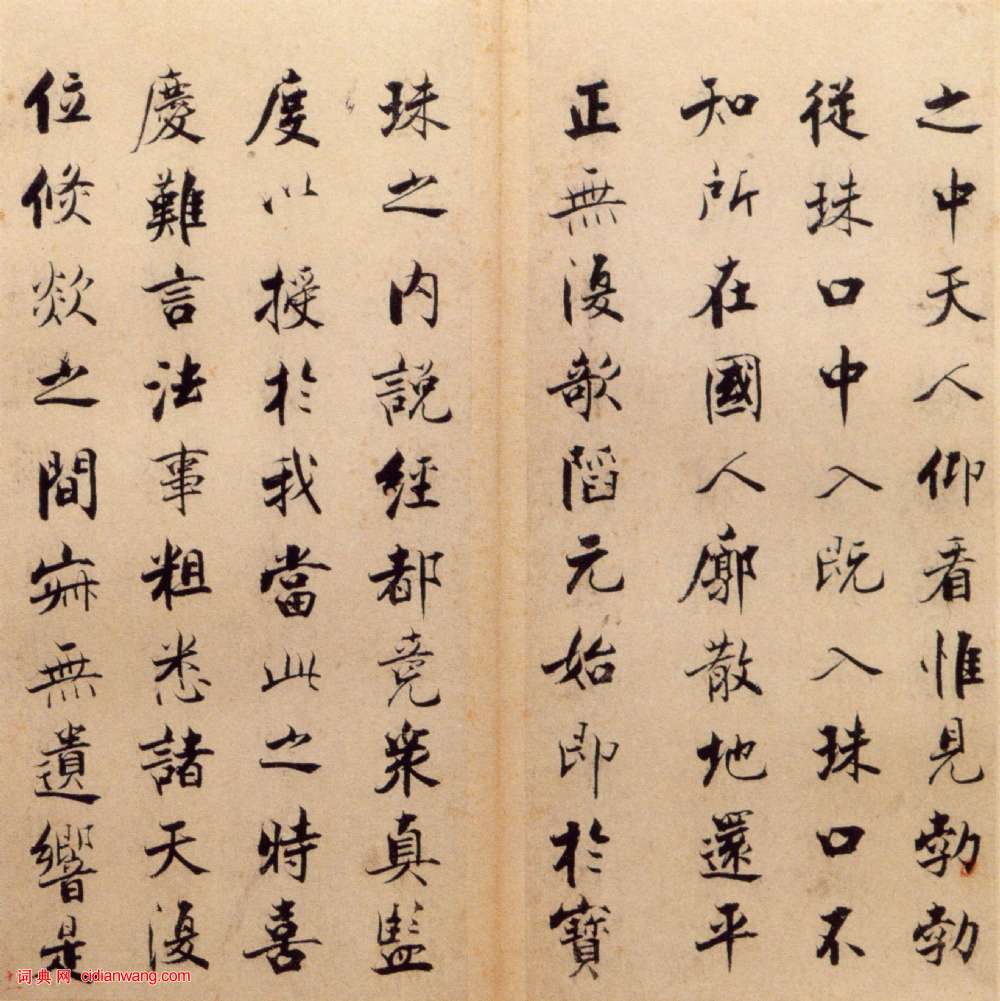 之中天人仰看惟見勃勃
從珠口中入既入珠口不
知所在國人廓散地還平
正無復欹陷元始即於寶
珠之内説經都竟衆真監
度以授於我當此之時喜
慶難言法事粗悉諸天復
位倏欻之間寂無遺響是
词典网 cidianwang.com